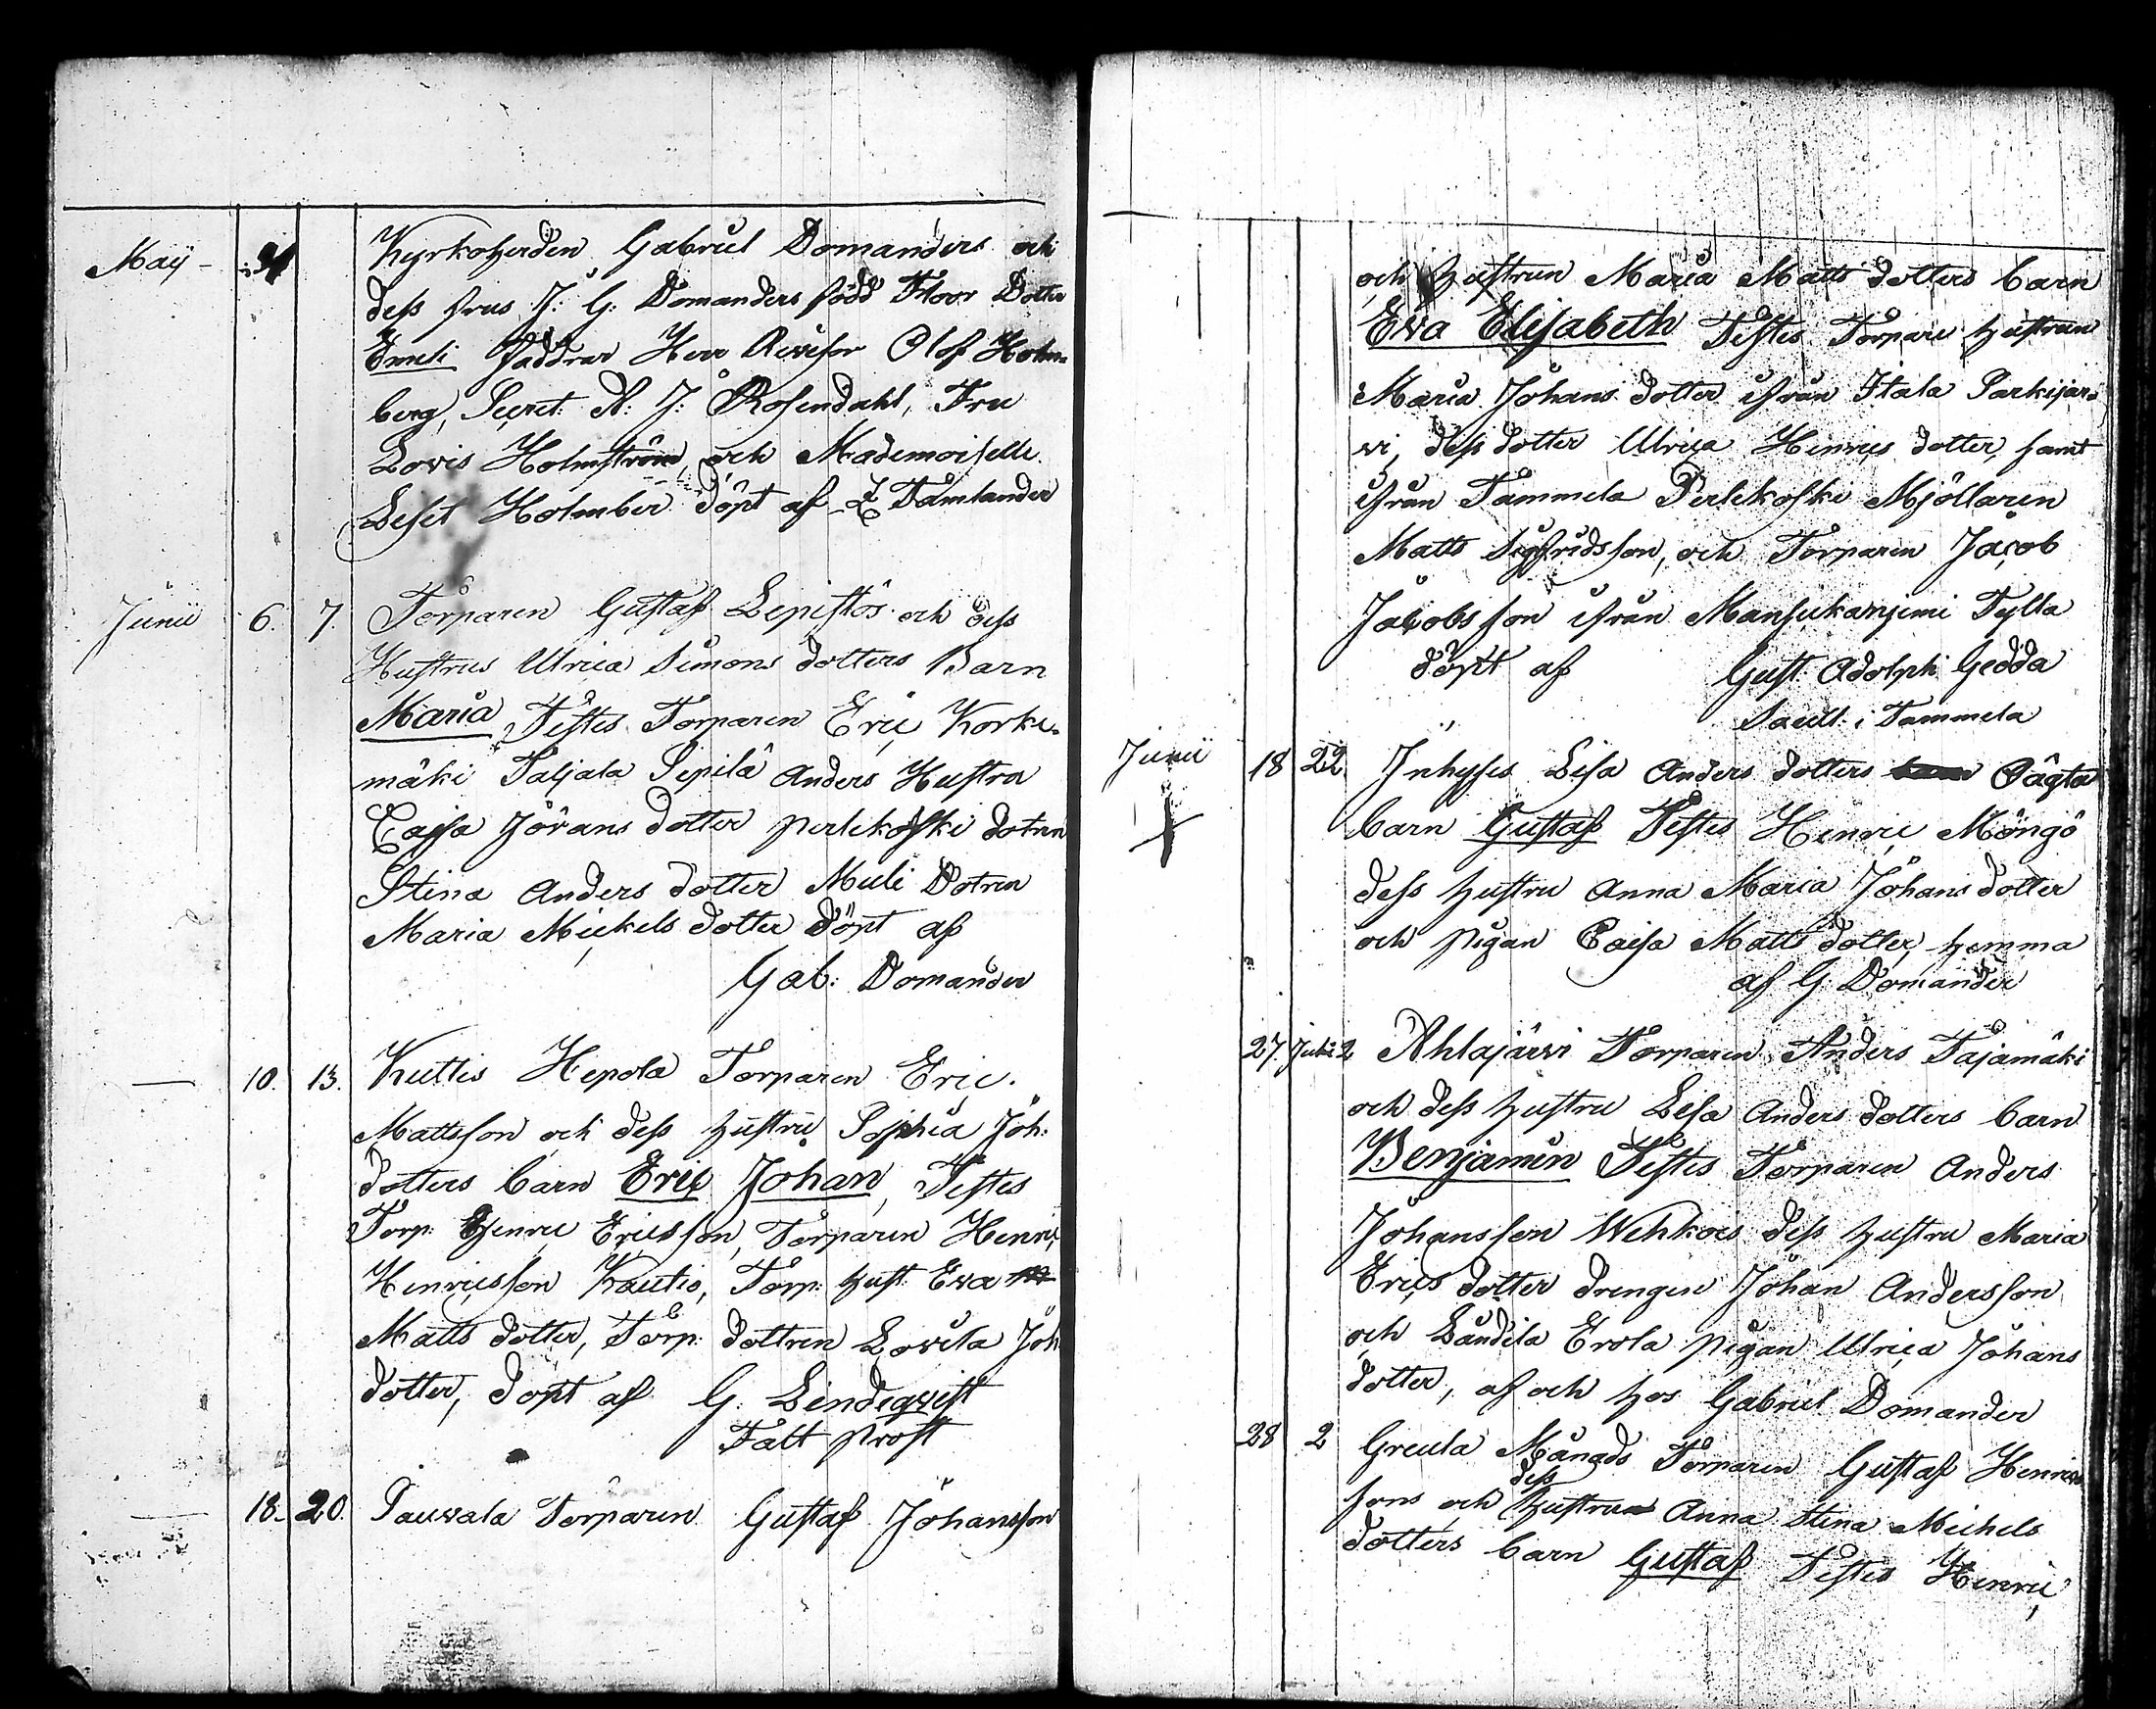 Maÿ - 31 Kyrkoherden Gabriel Domanders och
dess frus J: G: Domanders född Floor Dotter
Emeli Faddrar Herr Revisor Olof Holm-
berg, Secret: A: J: Rosendahl, Fru
Lovis Holmström och Mademoiselle
Leset Holmber döpt af Tamlander
Junii 6. 7. Torparen Gustaf Lepistös och dess
Hustrus Ulrica Simons dotters Barn
Maria Testes Torparen Eric Korke-
mäki Taljala Sipilä Anders Hustru
Cajsa Jörans dotter Perlekoski dotren
Stina Anders dotter Muli Dotren
Maria Mickels dotter döpt af
Gab: Domander
10. 13. Kuttis Hepola Torparen Eric
Mattsson och dess hustru Sophia Joh:
dotters barn Eric Johan, Testes
Torp: Henric Ericsson, Torparen Henric
Henricsson Kautio, Torp: hust: Eva
Matts dotter, Torp: dottren Lovisa Joh:
dotter, döpt af G. Lindeqvist
Fält prost
18. 20. Pauvala Torparen Gustaf Johansson
och hustrun Maria Matts dotters barn
Eva Elisabeth Testes Torpare hustrun
Maria Johans dotter ifrån Itala Särkijär-
vi, dess dotter Ulrica Henrics dotter, samt
ifrån Tammela Perlekoski Mjöllaren
Matts Sigfridsson, och Torparen Jacob
Jacobsson ifrån Mansikaniemi Tylla
döpt af Gust: Adolph Gedda
Sacell: i Tammela
Junii 18 22 Inhyses Lisa Anders dotters Oägta
barn Gustaf Testes Henric Möngö
dess hustru Anna Maria Johans dotter
och pigan Caisa Matts dotter, hemma
af G: Domander
27. Julii 2 Ahlajärvi Torparen Anders Tajamäki
och dess hustru Lisa Anders dotters barn
Benjamin Testes Torparen Anders
Johansson Wehkois dess hustru Maria
Erics dotter drengen Johan Andersson
och Saudila Erola pigan Ulrica Johans
dotter, af och hos Gabriel Domander
28 2 Greula Månads Torparen Gustaf Henrics
sons och dess hustru Anna Stina Michels
dotters barn Gustaf Testes Henric